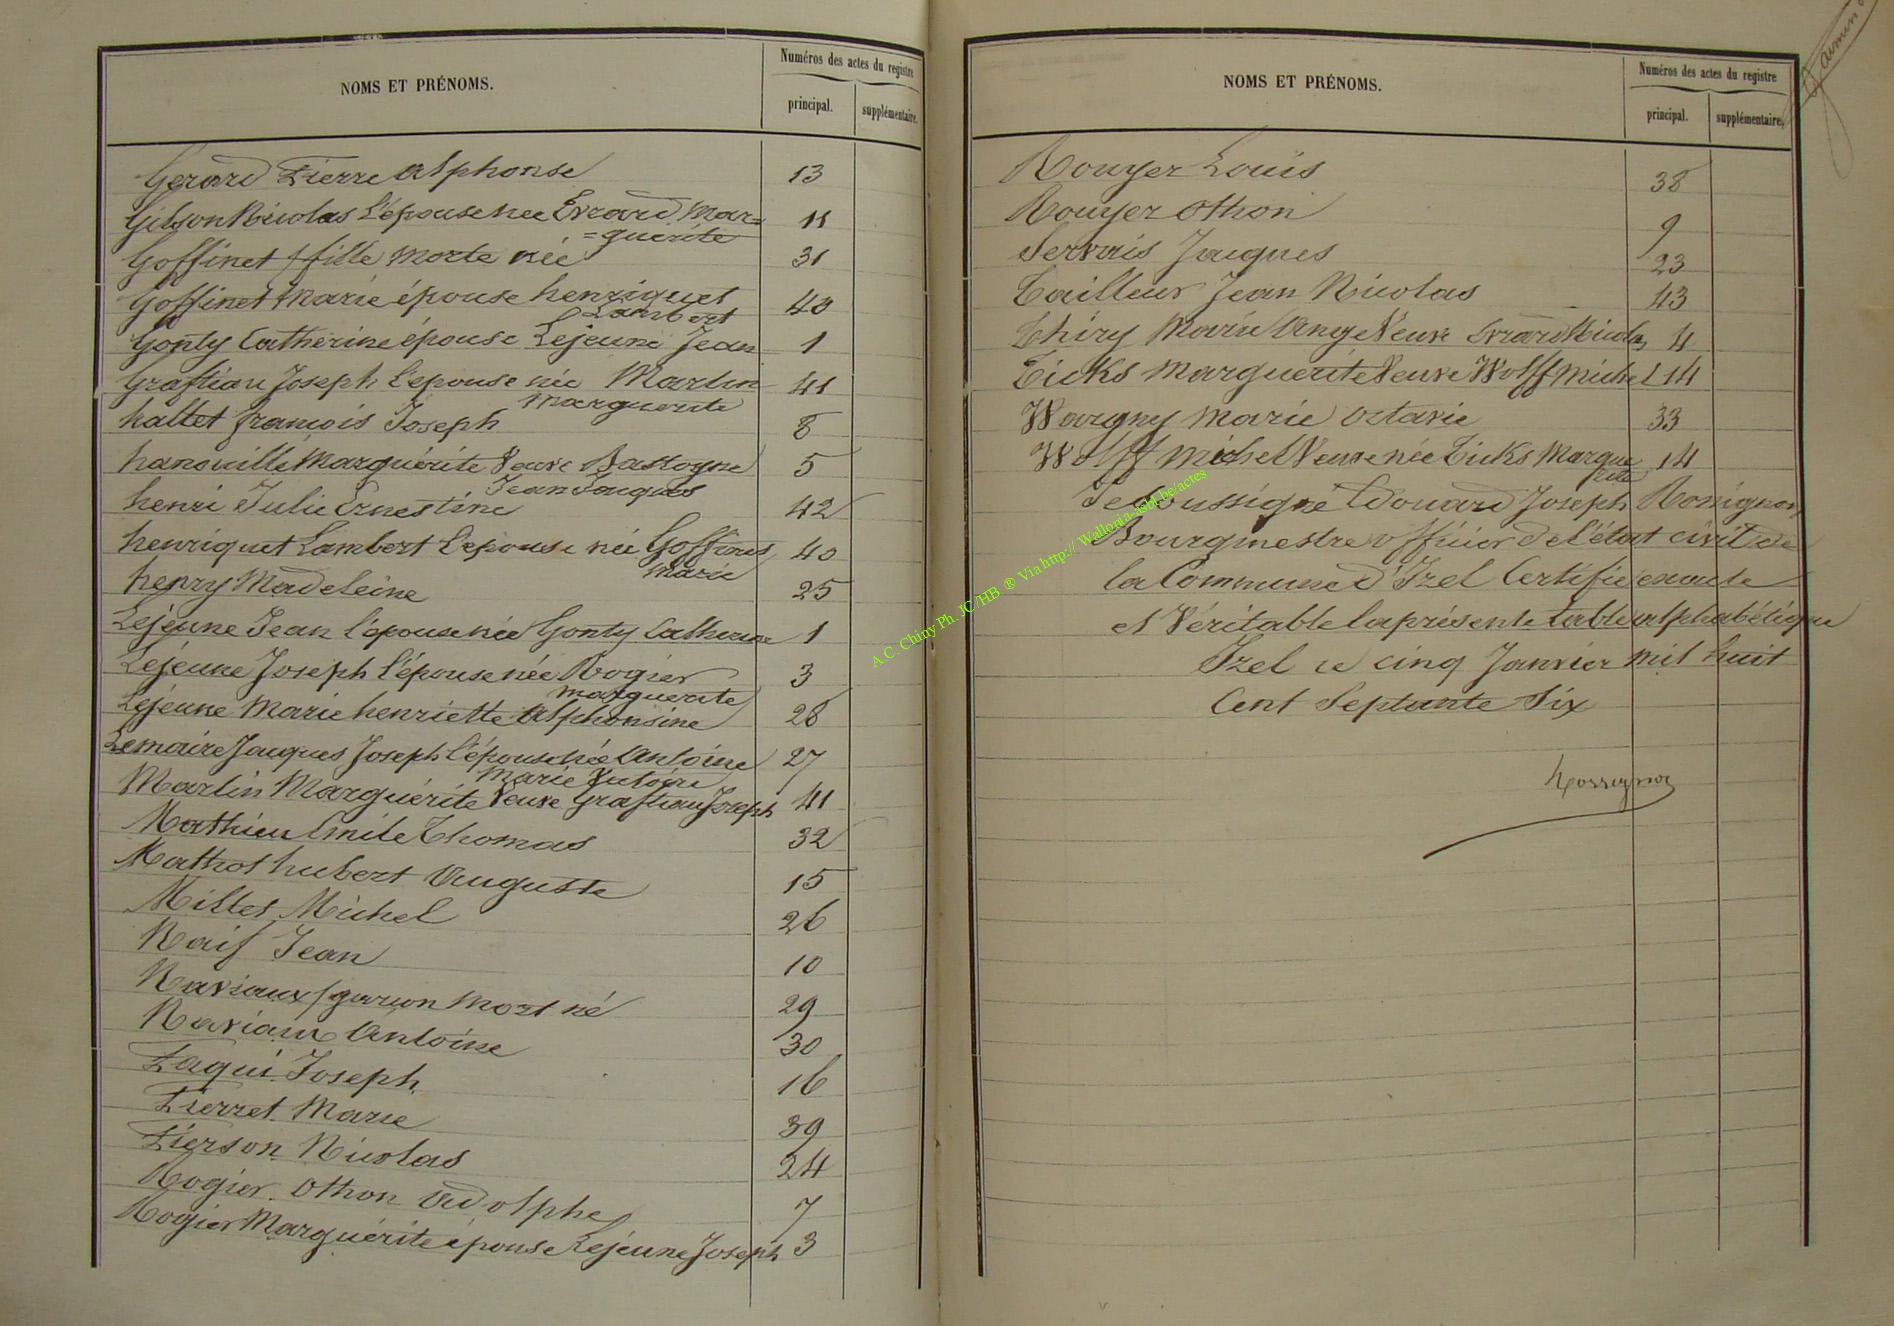 NOMS ET PRÉNOMS.
Numéros des actes du registre
principal.
supplémentaire.
Gerard Pierre Alphonse 13
Gibson Nicolas l'épouse née Evrard Mar= 11
=guérite
Goffinet / fille morte née 31
Goffinet Marie épouse henriquet 40
Lambert
Gonty Catherine épouse Lejeune Jean 1
Graftiau Joseph l'epouse née Martin 41
Marguerite
hallet françois Joseph 8
hanouille Marguérite Veuve Bastogne 5
Jean Jaques
henri Julie Ernestine 42
henriquet Lambert l'epouse née Goffinet 40
Marie
henry Madeleine 25
Lejeune Jean l'épouse née Gonty Catherine 1
Lejeune Joseph l'épouse née Rogier 3
marguerite
Lejeune Marie henriette Alphonsine 28
Lemaire Jacques Joseph l'épouse née Antoine 27
Marie
Martin Marguérite Veuve Graftiau Joseph 41
Mathieu Emile Thomas 32
Mathot hubert Auguste 15
Milles Michel 26
Naif Jean 10
Naviaux / garçon mort né 29
Naviaux Antoine 30
Paqui Joseph 16
Pierret Marie 39
Pierson Nicolas 24
Rogier Othon Adolphe 7
Rogier Marguérite épouse Lejeune Joseph 3
NOMS ET PRÉNOMS.
Numéros des actes du registre
principal.
supplémentaire.
Rouyer Louis 38
Rouyer Othon 9
Servais Jacques 23
Tailleur Jean Nicolas 43
Thiry Marie Ange Veuve Evrard Nicolas 4
Ticks Marguerite Veuve Wolff Michel 14
Wargny Marie Octavie 33
Wolff Michel Veuve née Ticks Margue 14
rite
Je soussigné Edouard Joseph Rossignon
Bourgmestre officier de l'état civil de
la Commune d'Izel Certifie exacte
et Véritable la présente table alphabétique
Izel ce cinq Janvier mil huit
Cent Septante Six
Rossignon
A C. Chiny Ph. JC/HB ® Via http:// Wallonia-asbl.be/actes